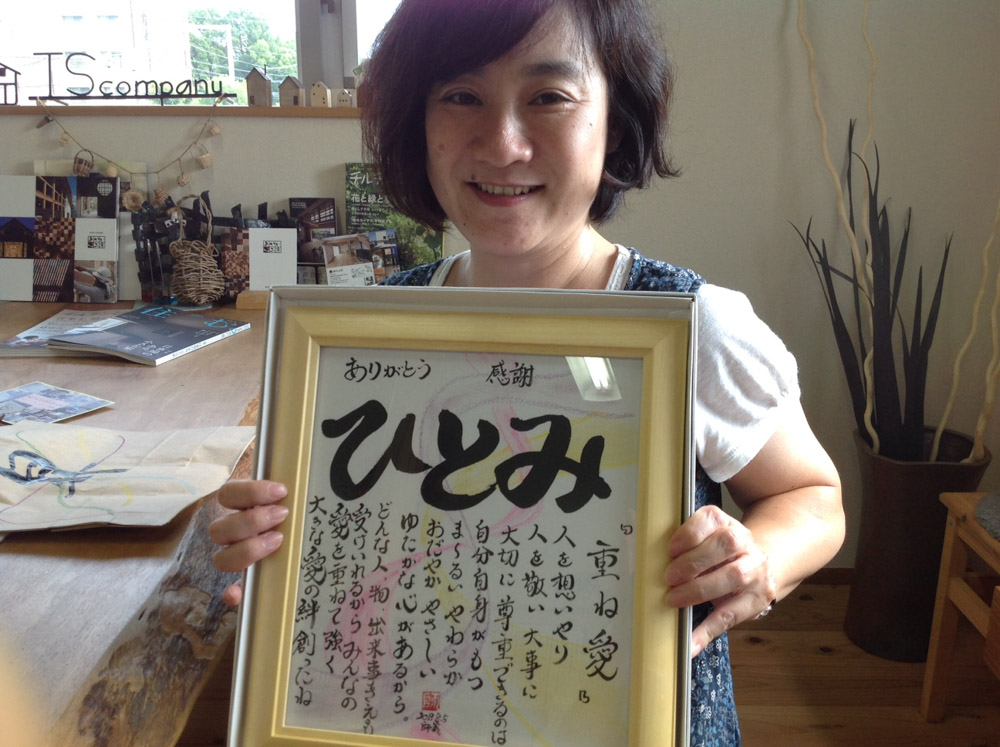 IScompany
チル
花と緑と
ありがとう 感謝
ひとみ
『重ね愛』
人を想いやり
人を敬い 大事に
大切に 尊重できるのは
自分自身がもつ
ま〜るい やわらか
おだやか やさしい
ゆたかな 心があるから。
どんな人 物 出来事さえも
受けいれるから みんなの
愛を重ねて強く
大きな愛の絆創ってね